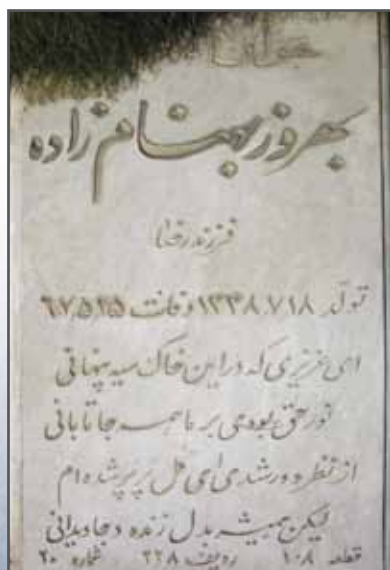 بهروز بهنام زاده
فرزند رضا
تولد ۱۳۳۸٫۷٫۱۸ وفات ۶۷٫۵٫۲۵
ای عزیزی که در این خاک سیه پنهانی
نور حق بودی بر ما همه جا تابانی
از نظر دور شدی ای گل پرپر شده ام
لیکن همیشه بدل زنده و جاویدانی
قطعه ۱۰۸ ردیف ۲۲۸ شماره ۲۰